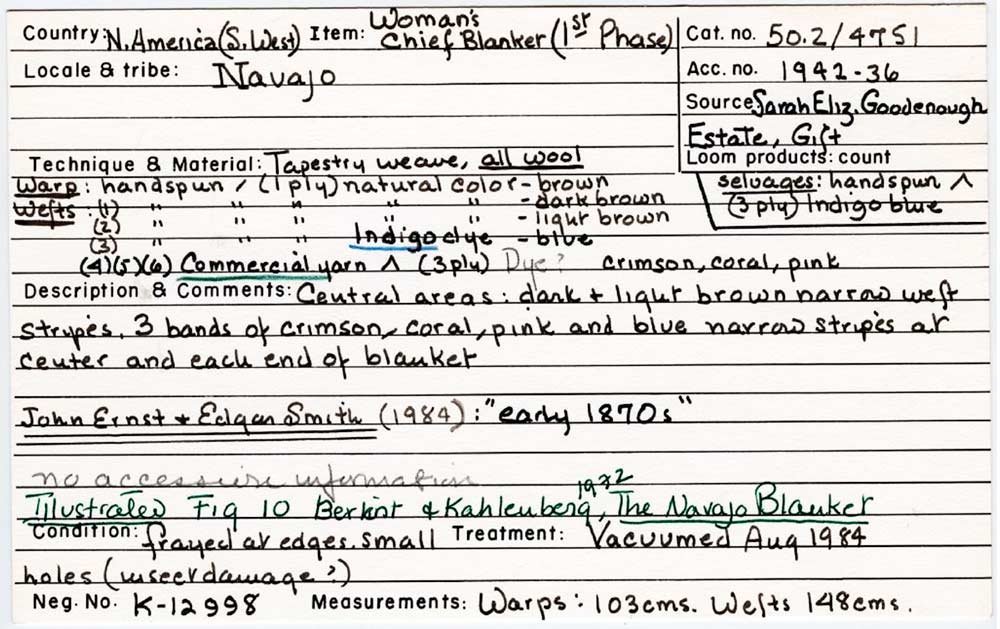 Country: N. America (S. West) Item: Woman's Chief Blanket (1st Phase)
Cat. no. 50.2/4751
Locale & tribe: Navajo
Acc. no. 1942-36
Source Sarah Eliz. Goodenough
Estate, Gift
Loom products: count
selvages: handspun Λ
(3 ply) Indigo blue
Technique & Material: Tapestry weave, all wool
Warp: handspun / (1 ply) natural color - brown
Wefts: (1) " " " " " - dark brown
(2) " " " " " - light brown
(3) " " " Indigo dye - blue
(4)(5)(6) Commercial yarn Λ (3 ply) Dye? crimson, coral, pink
Description & Comments: Central areas: dark + light brown narrow weft
stripes. 3 bands of crimson, coral, pink and blue narrow stripes at
center and each end of blanket
John Ernst + Edgar Smith (1984): "early 1870s"
no accession information
Illustrated Fig 10 Berlint & Kahlenberg, 1972, The Navajo Blanket
Condition: frayed at edges. small Treatment: Vacuumed Aug 1984
holes (insect damage?)
Neg. No. K-12998 Measurements: Warps: 103cms. Wefts 148cms.